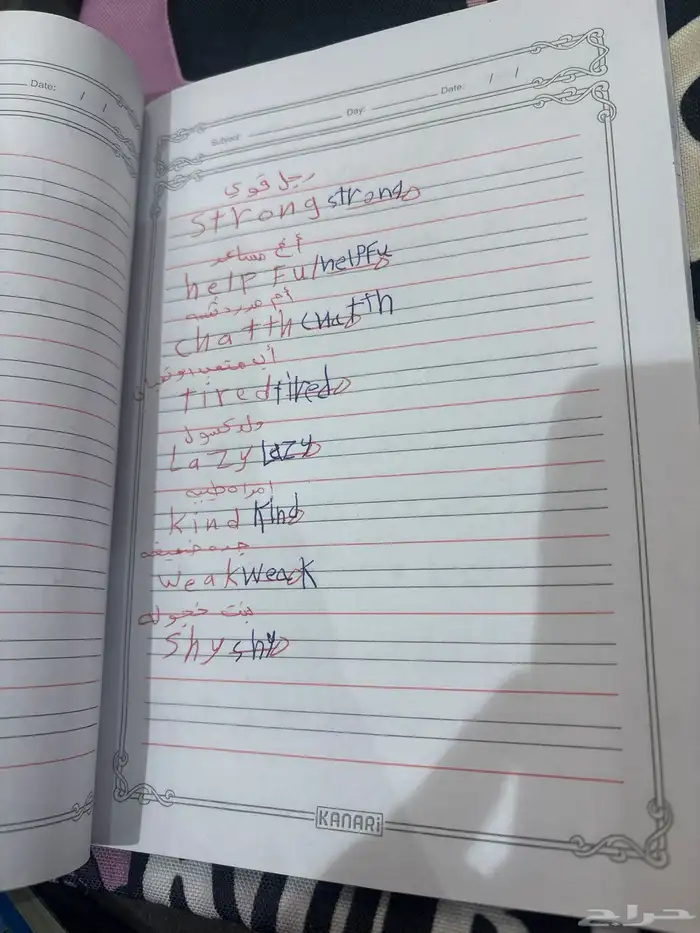 Date: / /
Subject: Day: Date: / /
رجل قوي
strong strong
أخ مساعد
help Ful helpFul
أم مدردشه
chatth chatth
tired tired
ولد كسول
Lazy lazy
امراه طيبه
kind Kind
جده ضعيفه
weak weack
بنت خجوله
shy shy
KANARi
حراج